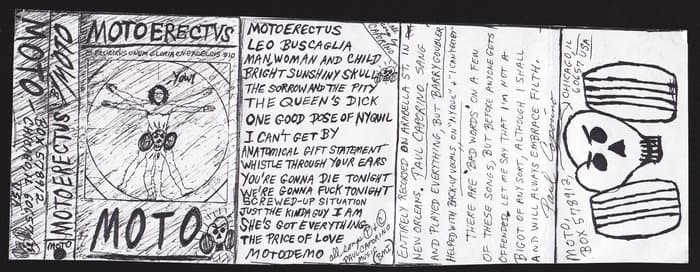 MOTOERECTUS
MOTO
BOX 578912
CHICAGO, IL 60657
USA
MOTOERECTUS
MOTO
MOTO
MOTOERECTUS
E PLURIBUS UNUM GLORIA EN EXCELCIS DIO
YOW!
MOTO
MOTOERECTUS
LEO BUSCAGLIA
MAN, WOMAN AND CHILD
BRIGHT SUNSHINY SKULL
THE SORROW AND THE PITY
THE QUEEN'S DICK
ONE GOOD DOSE OF NYQUIL
I CAN'T GET BY
ANATOMICAL GIFT STATEMENT
WHISTLE THROUGH YOUR EARS
YOU'RE GONNA DIE TONIGHT
WE'RE GONNA FUCK TONIGHT
SCREWED-UP SITUATION
JUST THE KINDA GUY I AM
SHE'S GOT EVERYTHING
THE PRICE OF LOVE
MOTODEMO
PAUL CAPORINO
MUSIC
BMI
ENTIRELY RECORDED ON ARABELLA ST. IN
NEW ORLEANS. PAUL CAPORINO SANG
AND PLAYED EVERYTHING, BUT BARRY GOUBLER
HELPED WITH BACK-UP VOCALS ON "NYQUIL" + "I CAN'T GET BY"
THERE ARE "BAD WORDS" ON A FEW
OF THESE SONGS, BUT BEFORE ANYONE GETS
OFFENDED, LET ME SAY THAT I'M NOT A
BIGOT OF ANY SORT, ALTHOUGH I SHALL
AND WILL ALWAYS EMBRACE FILTH.
Paul Caporino
MOTO,
BOX 578912,
CHICAGO, IL
60657 USA